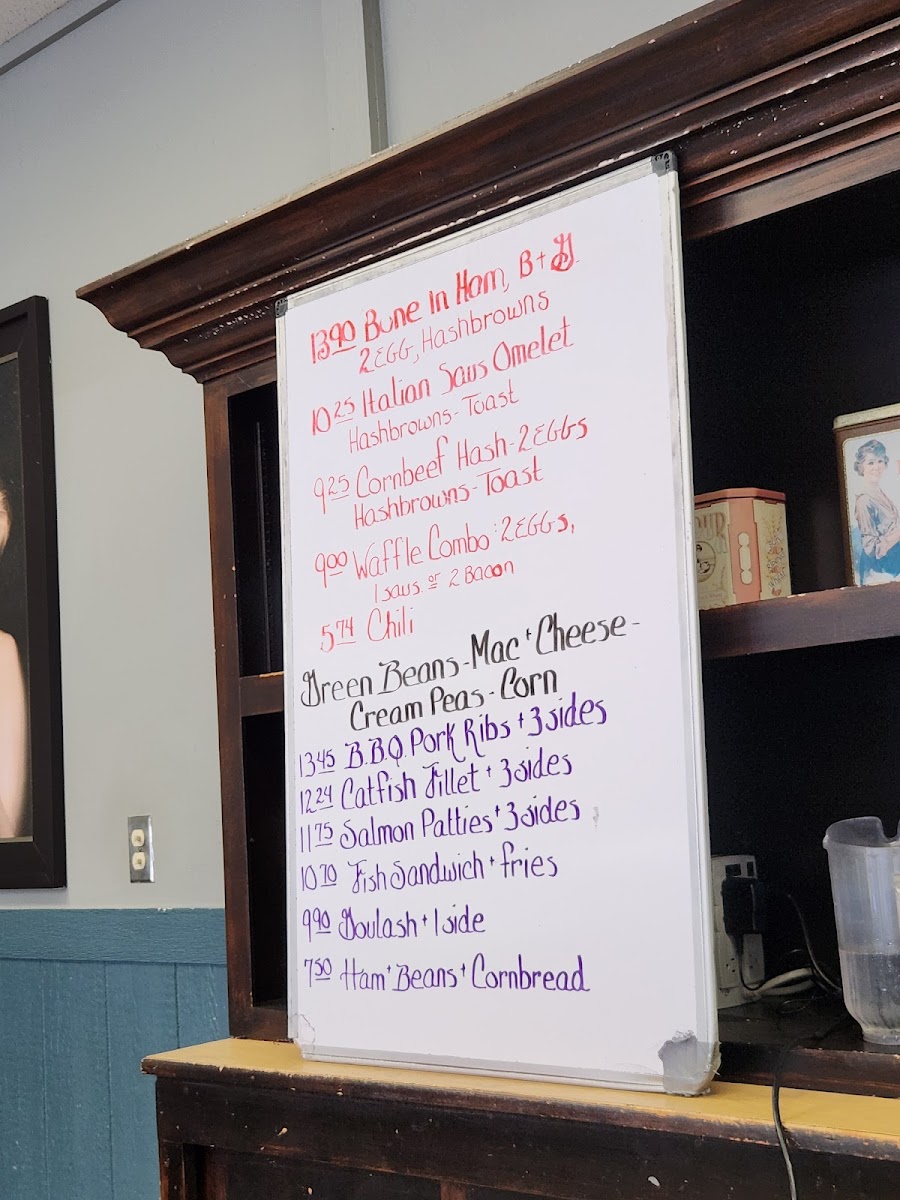 13.90 Bone in Ham, B+G.
2 EGG, Hashbrowns
10.25 Italian Saus Omelet
Hashbrowns-Toast
9.25 Cornbeef Hash-2 EGGs
Hashbrowns-Toast
9.00 Waffle Combo: 2 EGGs,
1 saus. or 2 Bacon
5.74 Chili
Green Beans-Mac+Cheese-
Cream Peas-Corn
13.45 B.B.Q. Pork Ribs + 3 sides
12.24 Catfish Fillet + 3 sides
11.75 Salmon Patties + 3 sides
10.70 Fish Sandwich + fries
9.90 Goulash + 1 side
7.50 Ham + Beans + Cornbread